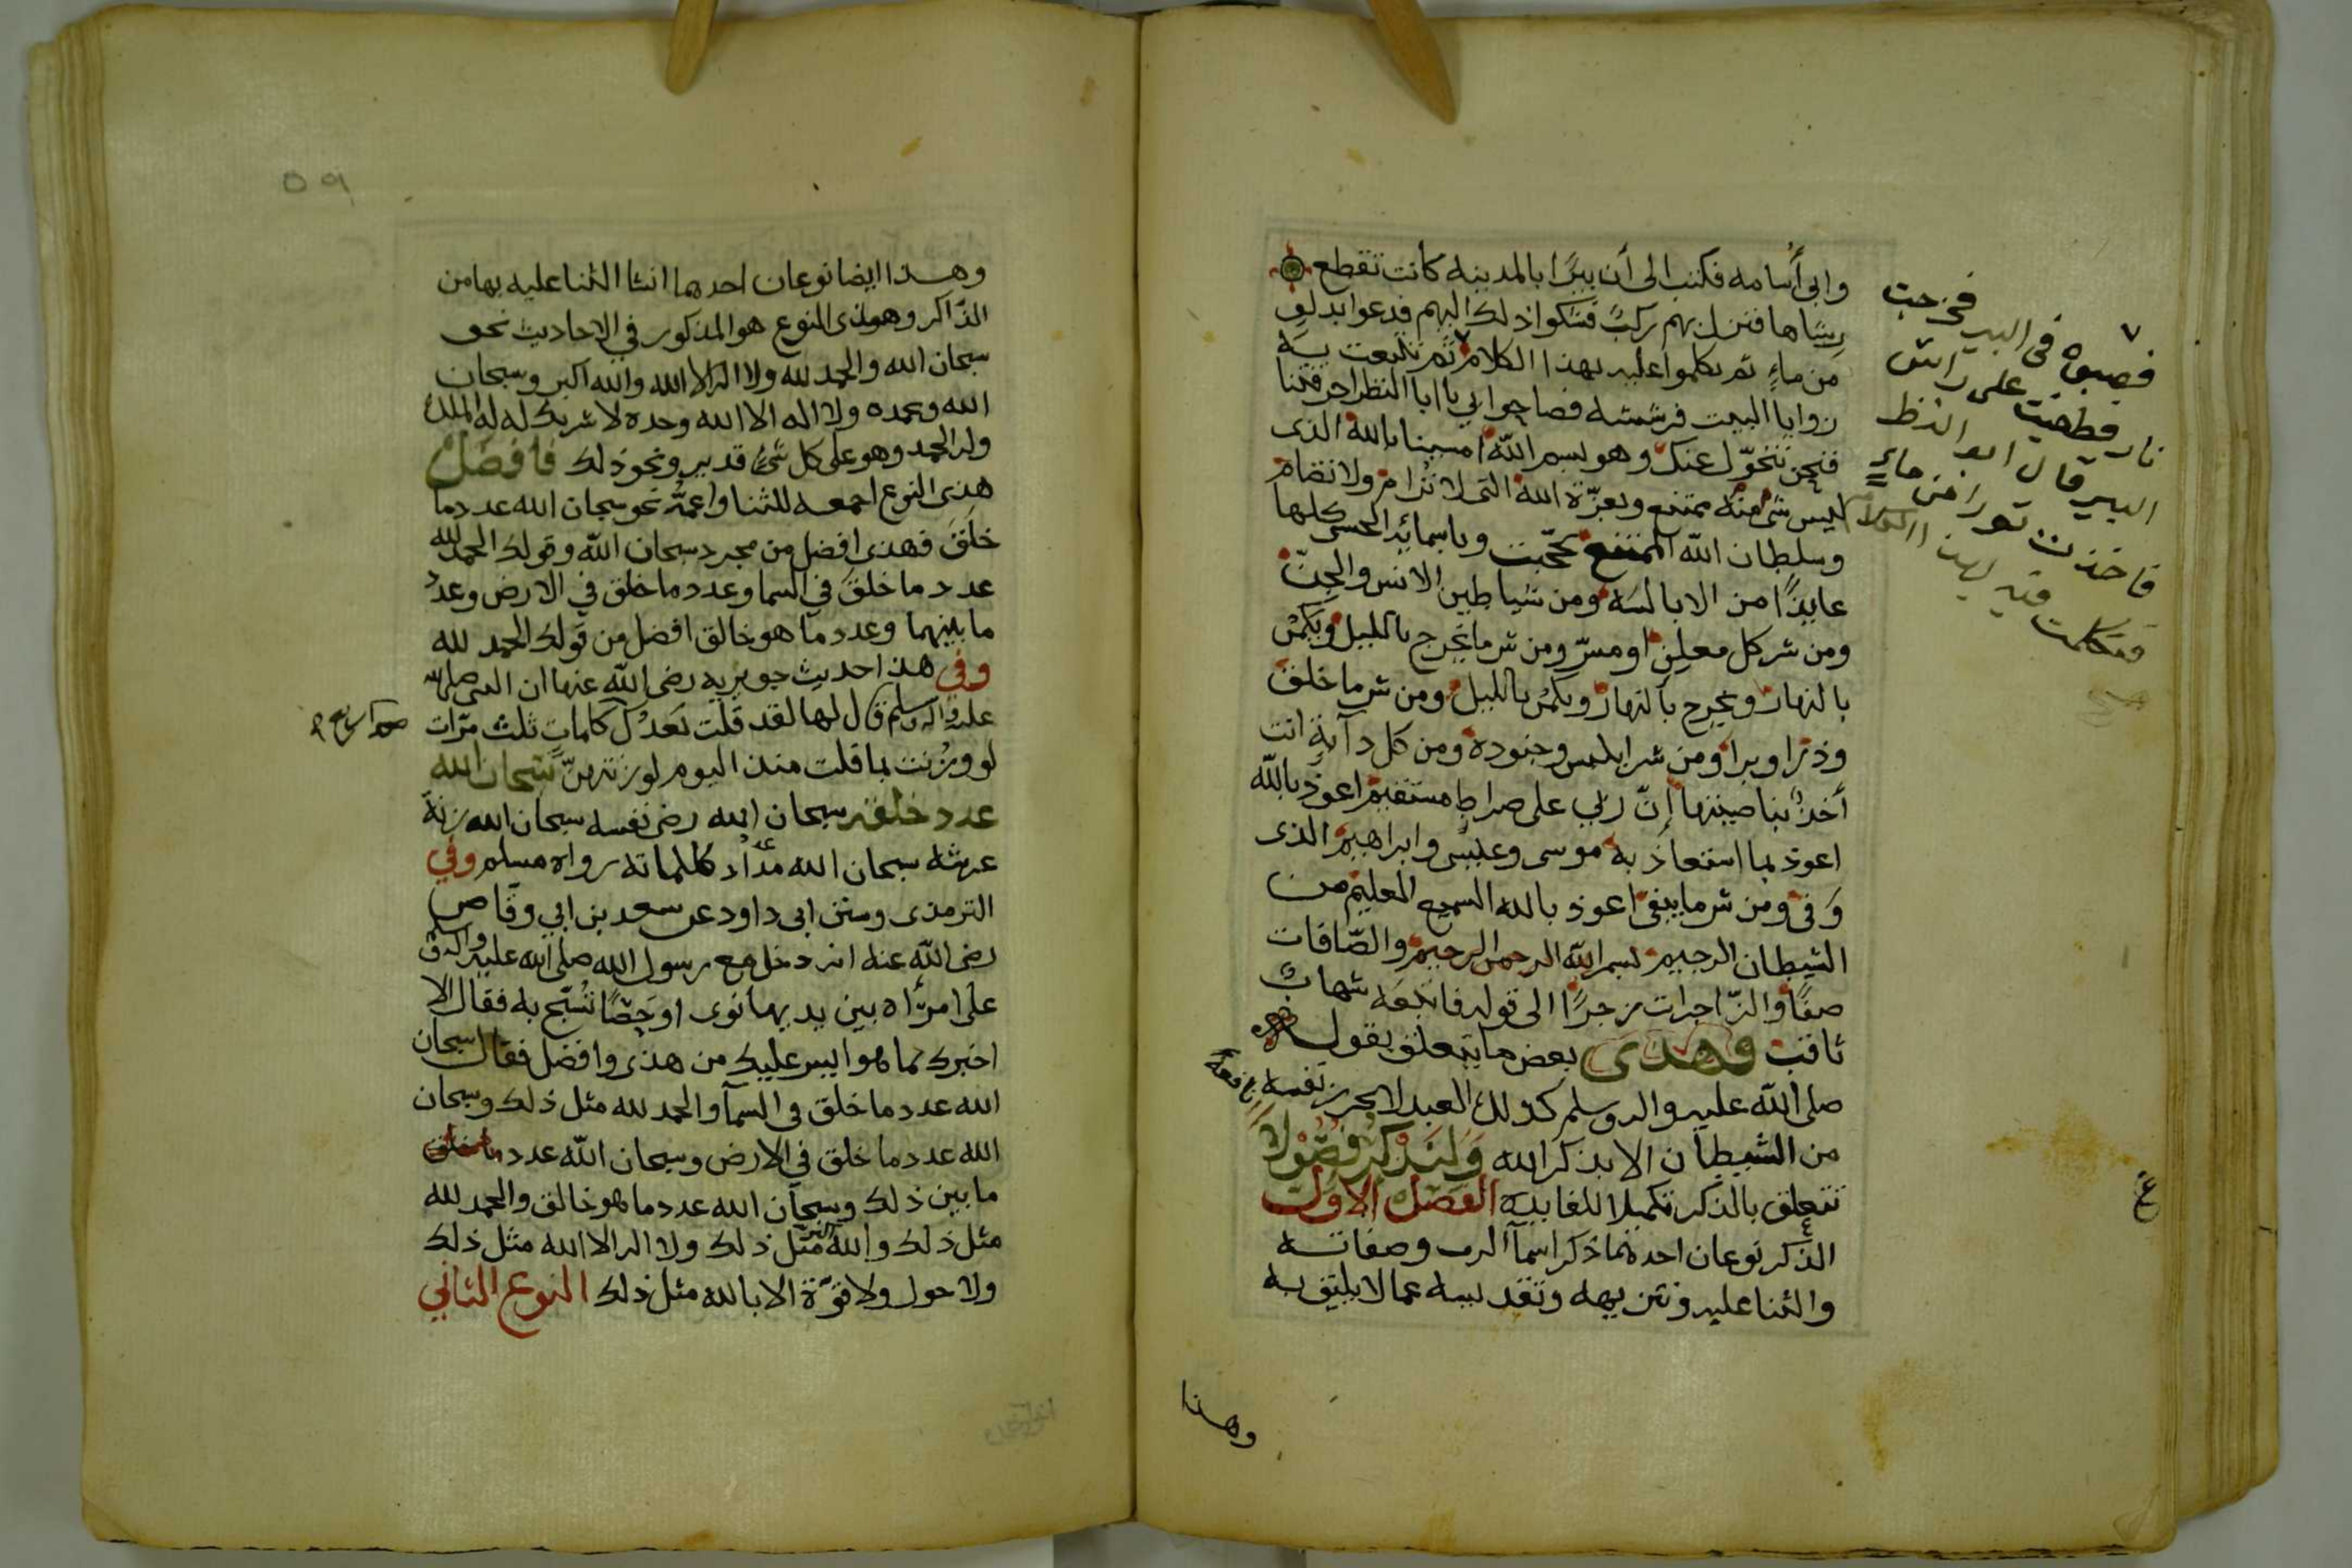 وابى أُسامه فكتب الى أن بيرًا بالمدينه كانت تقطع
رشاها فنزل بهم ركبٌ فشكوا ذلك اليهم فدعوا بدلوٍ
من ماءٍ ثم تكلموا عليه بهذا الكلام ثم تتبعت به
زوايا البيت فرششته فصاحوا بي يا ابا النظر احرقتنا
فنحن نتحوّل عنك وهو بسم الله امسينا بالله الذى
ليس شى منه ممتنع وبعزّة الله التى لا ترام ولا تضام
وسلطان الله الممتنع نحتجب وباسمائه الحسنى كلها
عايذًا من الابالسه ومن شياطين الانس والجنّ
ومن شر كل معلنٍ او مسرّ ومن شر ما يخرج بالليل ويكمن
بالنهار ويخرج بالنهار ويكمن بالليل ومن شر ما خلق
وذرا وبرا ومن شر ابليس وجنوده ومن كل دآبةٍ انت
أخذٌ بناصيتها إنّ ربي على صراط مستقيم اعوذ بالله
اعوذ بما استعاذ به موسى وعيسى وابراهيم الذى
وَفى ومن شر ما يبغى اعوذ بالله السميع العليم من
الشيطان الرجيم بسم الله الرحمن الرحيم والصّافات
صفًا والزّاجرات زجرًا الى قوله فاتبعه شهابٌ
ثاقب فهذى بعض ما يتعلق بقول
صلى الله عليه واله وسلم كذلك العبد لا يحرز نفسه
من الشيطان الا بذكر الله وَلنَذكر فصُولًا
تتعلق بالذكر تكميلا للفايده الفصل الاول
الذكر نوعان احدهما ذكر اسمآ الرب وصفاته
والثنا عليه وتنزيهه وتقديسه عما لا يليق به
وهذا
فصبوه فى البير فخرجت
نار فطفيت على راس
البير قال ابو النظر
فاخذت تورا من ماءٍ
فتكلمت فيه بهذا الكلام
وهذا ايضا نوعان احدهما انشا الثنا عليه بها من
الذّاكر وهذى النوع هو المذكور في الاحاديث نحو
سبحان الله والحمد لله ولا اله الا الله والله اكبر وسبحان
الله وبحمده ولا اله الا الله وحده لا شريك له له الملك
وله الحمد وهو على كل شىٍ قدير ونحو ذلك فافضل
هذى النوع اجمعه للثنا واعمّه نحو سبحان الله عدد ما
خلقَ فهذى افضل من مجرد سبحان الله وقولك الحمد لله
عدد ما خلق في السما وعدد ما خلق في الارض وعدد
ما بينهما وعدد ما هو خالق افضل من قولك الحمد لله
وفي هذا حديث جويريه رضى الله عنها ان النبى صلى الله
عليه واله وسلم قال لها لقد قلت بَعدك كلمات ثلث مرّات
لو وزنت بما قلت منذ اليوم لوزنتهنّ سبحان الله
عدد خلقه سبحان الله رضى نفسه سبحان الله زنة
عرشه سبحان الله مداد كلماته رواه مسلم وفي
الترمذى وسنن ابى داود عن سعد بن ابي وقّاص
رضى الله عنه انه دخل مع رسول الله صلى الله عليه واله وسلم
على امرأه بين يديها نوى او حَصًا تُسبّح به فقال الا
اخبرك بما هو ايسر عليك من هذى وافضل فقال سبحان
الله عدد ما خلق فى السمآ والحمد لله مثل ذلك وسبحان
الله عدد ما خلق في الارض وسبحان الله عدد
ما بين ذلك وسبحان الله عدد ما هو خالق والحمد لله
مثل ذلك والله اكبر مثل ذلك ولا اله الا الله مثل ذلك
ولا حول ولا قوّة الا بالله مثل ذلك النوع الثاني
٥٩